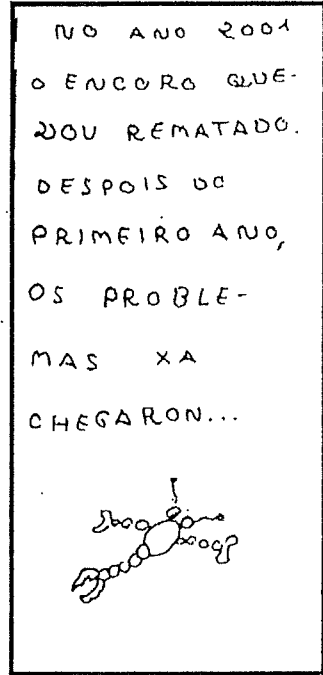 NO ANO 2001
O ENCORO QUE-
DOU REMATADO.
DESPOIS DO
PRIMEIRO ANO,
OS PROBLE-
MAS XA
CHEGARON...